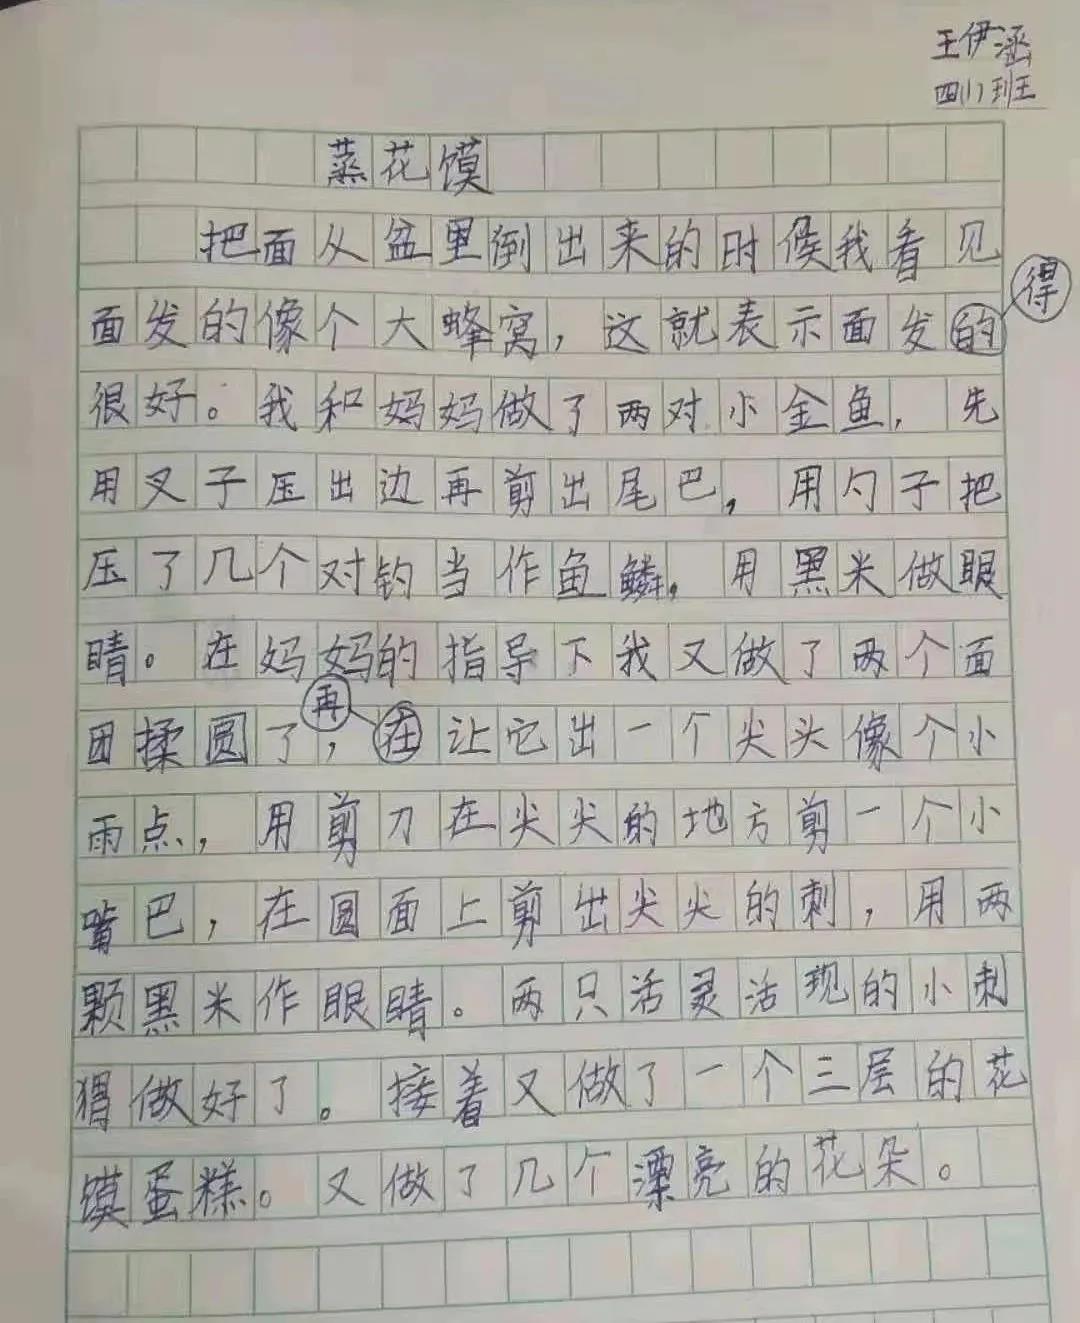 王伊涵
四(1)班
蒸花馍
把面从盆里倒出来的时候我看见
得
面发的像个大蜂窝,这就表示面发的
很好。我和妈妈做了两对小金鱼,先
用叉子压出边再剪出尾巴,用勺子把
压了几个对钓当作鱼鳞,用黑米做眼
睛。在妈妈的指导下我又做了两个面
再
团揉圆了,在让它出一个尖头像个小
雨点,用剪刀在尖尖的地方剪一个小
嘴巴,在圆面上剪出尖尖的刺,用两
颗黑米作眼睛。两只活灵活现的小刺
猬做好了。接着又做了一个三层的花
馍蛋糕。又做了几个漂亮的花朵。